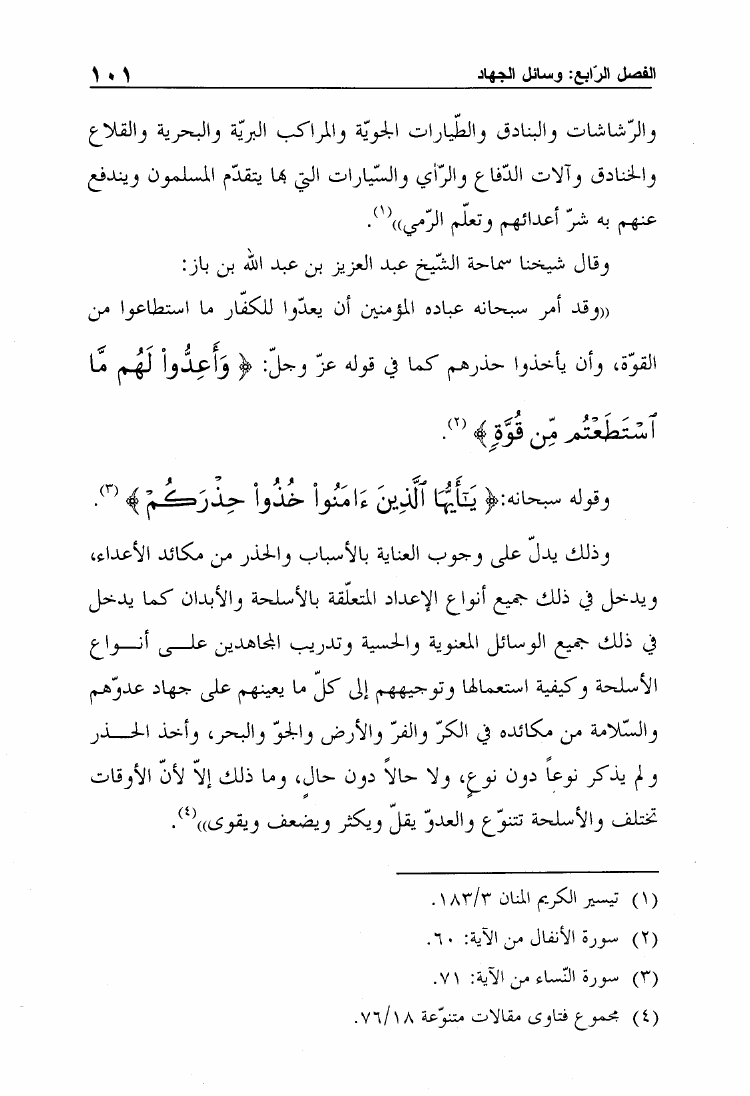 الفصل الرّابع: وسائل الجهاد ١٠١
والرّشاشات والبنادق والطّيارات الجويّة والمراكب البريّة والبحرية والقلاع
والخنادق وآلات الدّفاع والرّأي والسّيارات التي بها يتقدّم المسلمون ويندفع
عنهم به شرّ أعدائهم وتعلّم الرّمي))(١).
وقال شيخنا سماحة الشّيخ عبد العزيز بن عبد الله بن باز:
((وقد أمر سبحانه عباده المؤمنين أن يعدّوا للكفّار ما استطاعوا من
القوّة، وأن يأخذوا حذرهم كما في قوله عزّ وجلّ: ﴿ وَأَعِدُّواْ لَهُم مَّا
ٱسْتَطَعْتُم مِّن قُوَّةٍ ﴾(٢).
وقوله سبحانه: ﴿ يَـٰٓأَيُّهَا ٱلَّذِينَ ءَامَنُواْ خُذُواْ حِذْرَكُمْ ﴾(٣).
وذلك يدلّ على وجوب العناية بالأسباب والحذر من مكائد الأعداء،
ويدخل في ذلك جميع أنواع الإعداد المتعلّقة بالأسلحة والأبدان كما يدخل
في ذلك جميع الوسائل المعنوية والحسية وتدريب المجاهدين علـــى أنـــواع
الأسلحة وكيفية استعمالها وتوجيههم إلى كلّ ما يعينهم على جهاد عدوّهم
والسّلامة من مكائده في الكرّ والفرّ والأرض والجوّ والبحر، وأخذ الحـــذر
ولم يذكر نوعاً دون نوعٍ، ولا حالاً دون حالٍ، وما ذلك إلاّ لأنّ الأوقات
تختلف والأسلحة تتنوّع والعدوّ يقلّ ويكثر ويضعف ويقوى))(٤).
(١) تيسير الكريم المنان ١٨٣/٣.
(٢) سورة الأنفال من الآية: ٦٠.
(٣) سورة النّساء من الآية: ٧١.
(٤) مجموع فتاوى مقالات متنوّعة ٧٦/١٨.